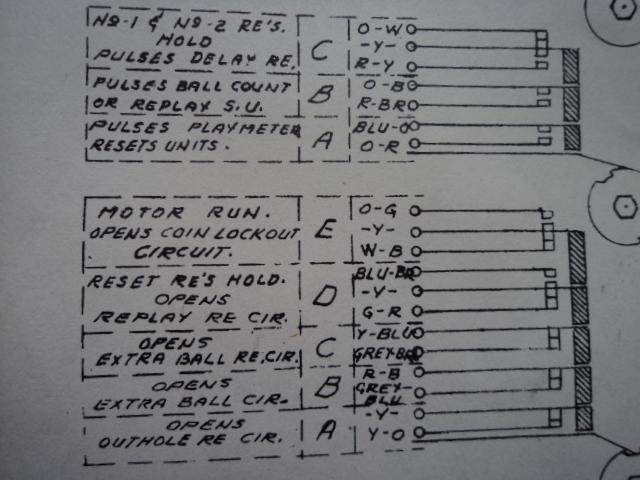 No-1 & No-2 RE'S. HOLD PULSES DELAY RE. C O-W -Y- R-Y
PULSES BALL COUNT OR REPLAY S.U. B O-B R-BR
PULSES PLAYMETER RESETS UNITS. A BLU-O O-R
MOTOR RUN. OPENS COIN LOCKOUT CIRCUIT. E O-G -Y- W-B
RESET RE'S HOLD. OPENS REPLAY RE CIR. D BLU-BR -Y- G-R
OPENS EXTRA BALL RE.CIR. C Y-BLU GREY-BR
OPENS EXTRA BALL CIR. B R-B GREY-BLU
OPENS OUTHOLE RE CIR. A -Y- Y-O